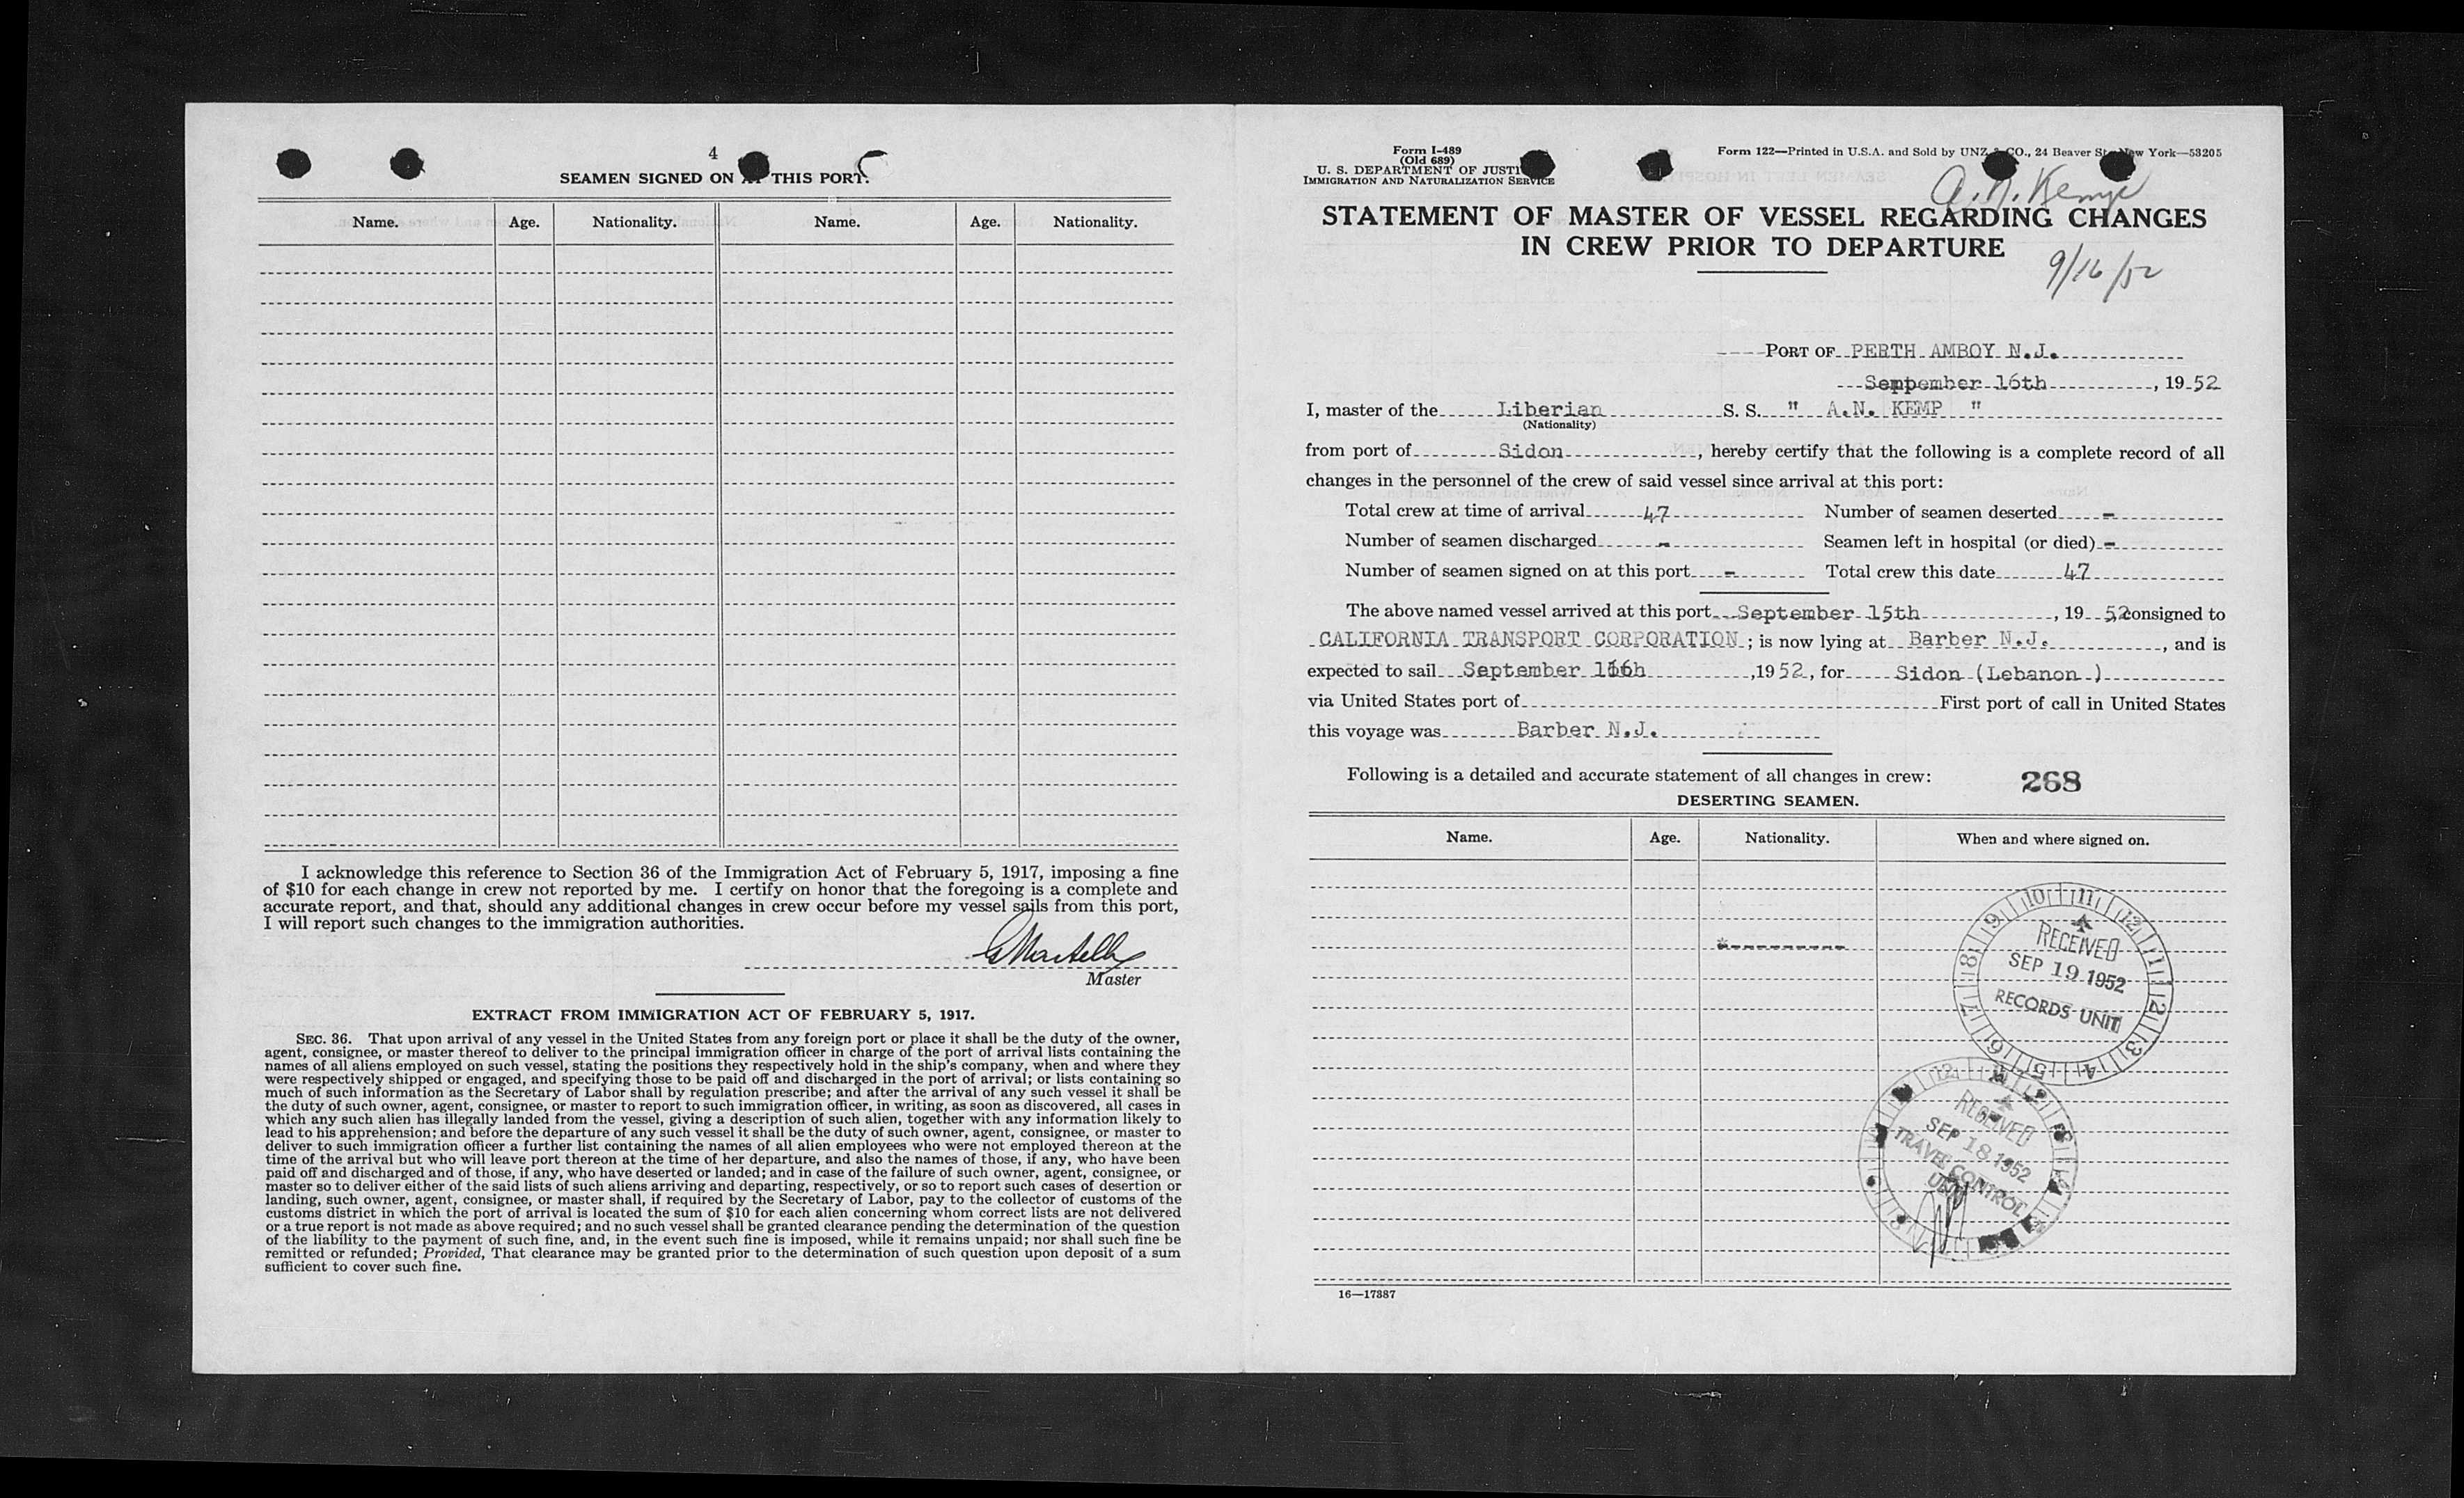 4
SEAMEN SIGNED ON AT THIS PORT.
Name. Age. Nationality. Name. Age. Nationality.
I acknowledge this reference to Section 36 of the Immigration Act of February 5, 1917, imposing a fine
of $10 for each change in crew not reported by me. I certify on honor that the foregoing is a complete and
accurate report, and that, should any additional changes in crew occur before my vessel sails from this port,
I will report such changes to the immigration authorities.
Master
EXTRACT FROM IMMIGRATION ACT OF FEBRUARY 5, 1917.
SEC. 36. That upon arrival of any vessel in the United States from any foreign port or place it shall be the duty of the owner,
agent, consignee, or master thereof to deliver to the principal immigration officer in charge of the port of arrival lists containing the
names of all aliens employed on such vessel, stating the positions they respectively hold in the ship's company, when and where they
were respectively shipped or engaged, and specifying those to be paid off and discharged in the port of arrival; or lists containing so
much of such information as the Secretary of Labor shall by regulation prescribe; and after the arrival of any such vessel it shall be
the duty of such owner, agent, consignee, or master to report to such immigration officer, in writing, as soon as discovered, all cases in
which any such alien has illegally landed from the vessel, giving a description of such alien, together with any information likely to
lead to his apprehension; and before the departure of any such vessel it shall be the duty of such owner, agent, consignee, or master to
deliver to such immigration officer a further list containing the names of all alien employees who were not employed thereon at the
time of the arrival but who will leave port thereon at the time of her departure, and also the names of those, if any, who have been
paid off and discharged and of those, if any, who have deserted or landed; and in case of the failure of such owner, agent, consignee, or
master so to deliver either of the said lists of such aliens arriving and departing, respectively, or so to report such cases of desertion or
landing, such owner, agent, consignee, or master shall, if required by the Secretary of Labor, pay to the collector of customs of the
customs district in which the port of arrival is located the sum of $10 for each alien concerning whom correct lists are not delivered
or a true report is not made as above required; and no such vessel shall be granted clearance pending the determination of the question
of the liability to the payment of such fine, and, in the event such fine is imposed, while it remains unpaid; nor shall such fine be
remitted or refunded; Provided, That clearance may be granted prior to the determination of such question upon deposit of a sum
sufficient to cover such fine.
Form I-489
(Old 689)
U. S. DEPARTMENT OF JUSTICE
IMMIGRATION AND NATURALIZATION SERVICE
Form 122—Printed in U.S.A. and Sold by UNZ & CO., 24 Beaver St., New York—53205
A. N. Kemp
STATEMENT OF MASTER OF VESSEL REGARDING CHANGES
IN CREW PRIOR TO DEPARTURE
9/16/52
PORT OF PERTH AMBOY N.J.
September 16th, 1952
I, master of the Liberian S. S. " A.N. KEMP "
(Nationality)
from port of Sidon, hereby certify that the following is a complete record of all
changes in the personnel of the crew of said vessel since arrival at this port:
Total crew at time of arrival 47 Number of seamen deserted -
Number of seamen discharged - Seamen left in hospital (or died) -
Number of seamen signed on at this port - Total crew this date 47
The above named vessel arrived at this port September 15th, 1952, consigned to
CALIFORNIA TRANSPORT CORPORATION; is now lying at Barber N.J., and is
expected to sail September 16th, 1952, for Sidon (Lebanon )
via United States port of First port of call in United States
this voyage was Barber N.J.
Following is a detailed and accurate statement of all changes in crew: 268
DESERTING SEAMEN.
Name. Age. Nationality. When and where signed on.
RECEIVED
SEP 19 1952
RECORDS UNIT
RECEIVED
SEP 18 1952
TRAVEL CONTROL
UNIT
16—17387